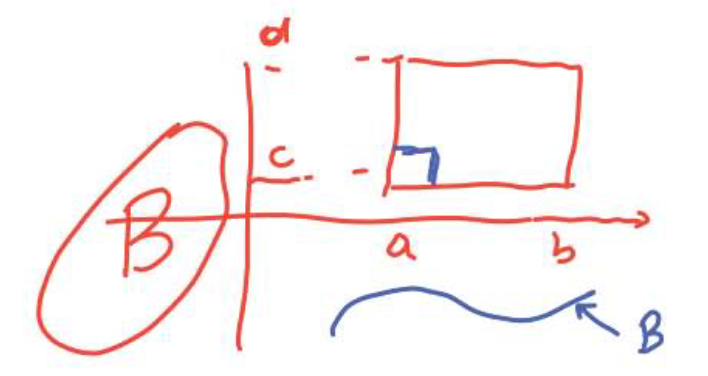 d
c
B
a b
B